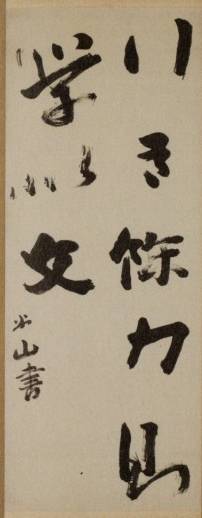 行有餘力則
学以文
米山書